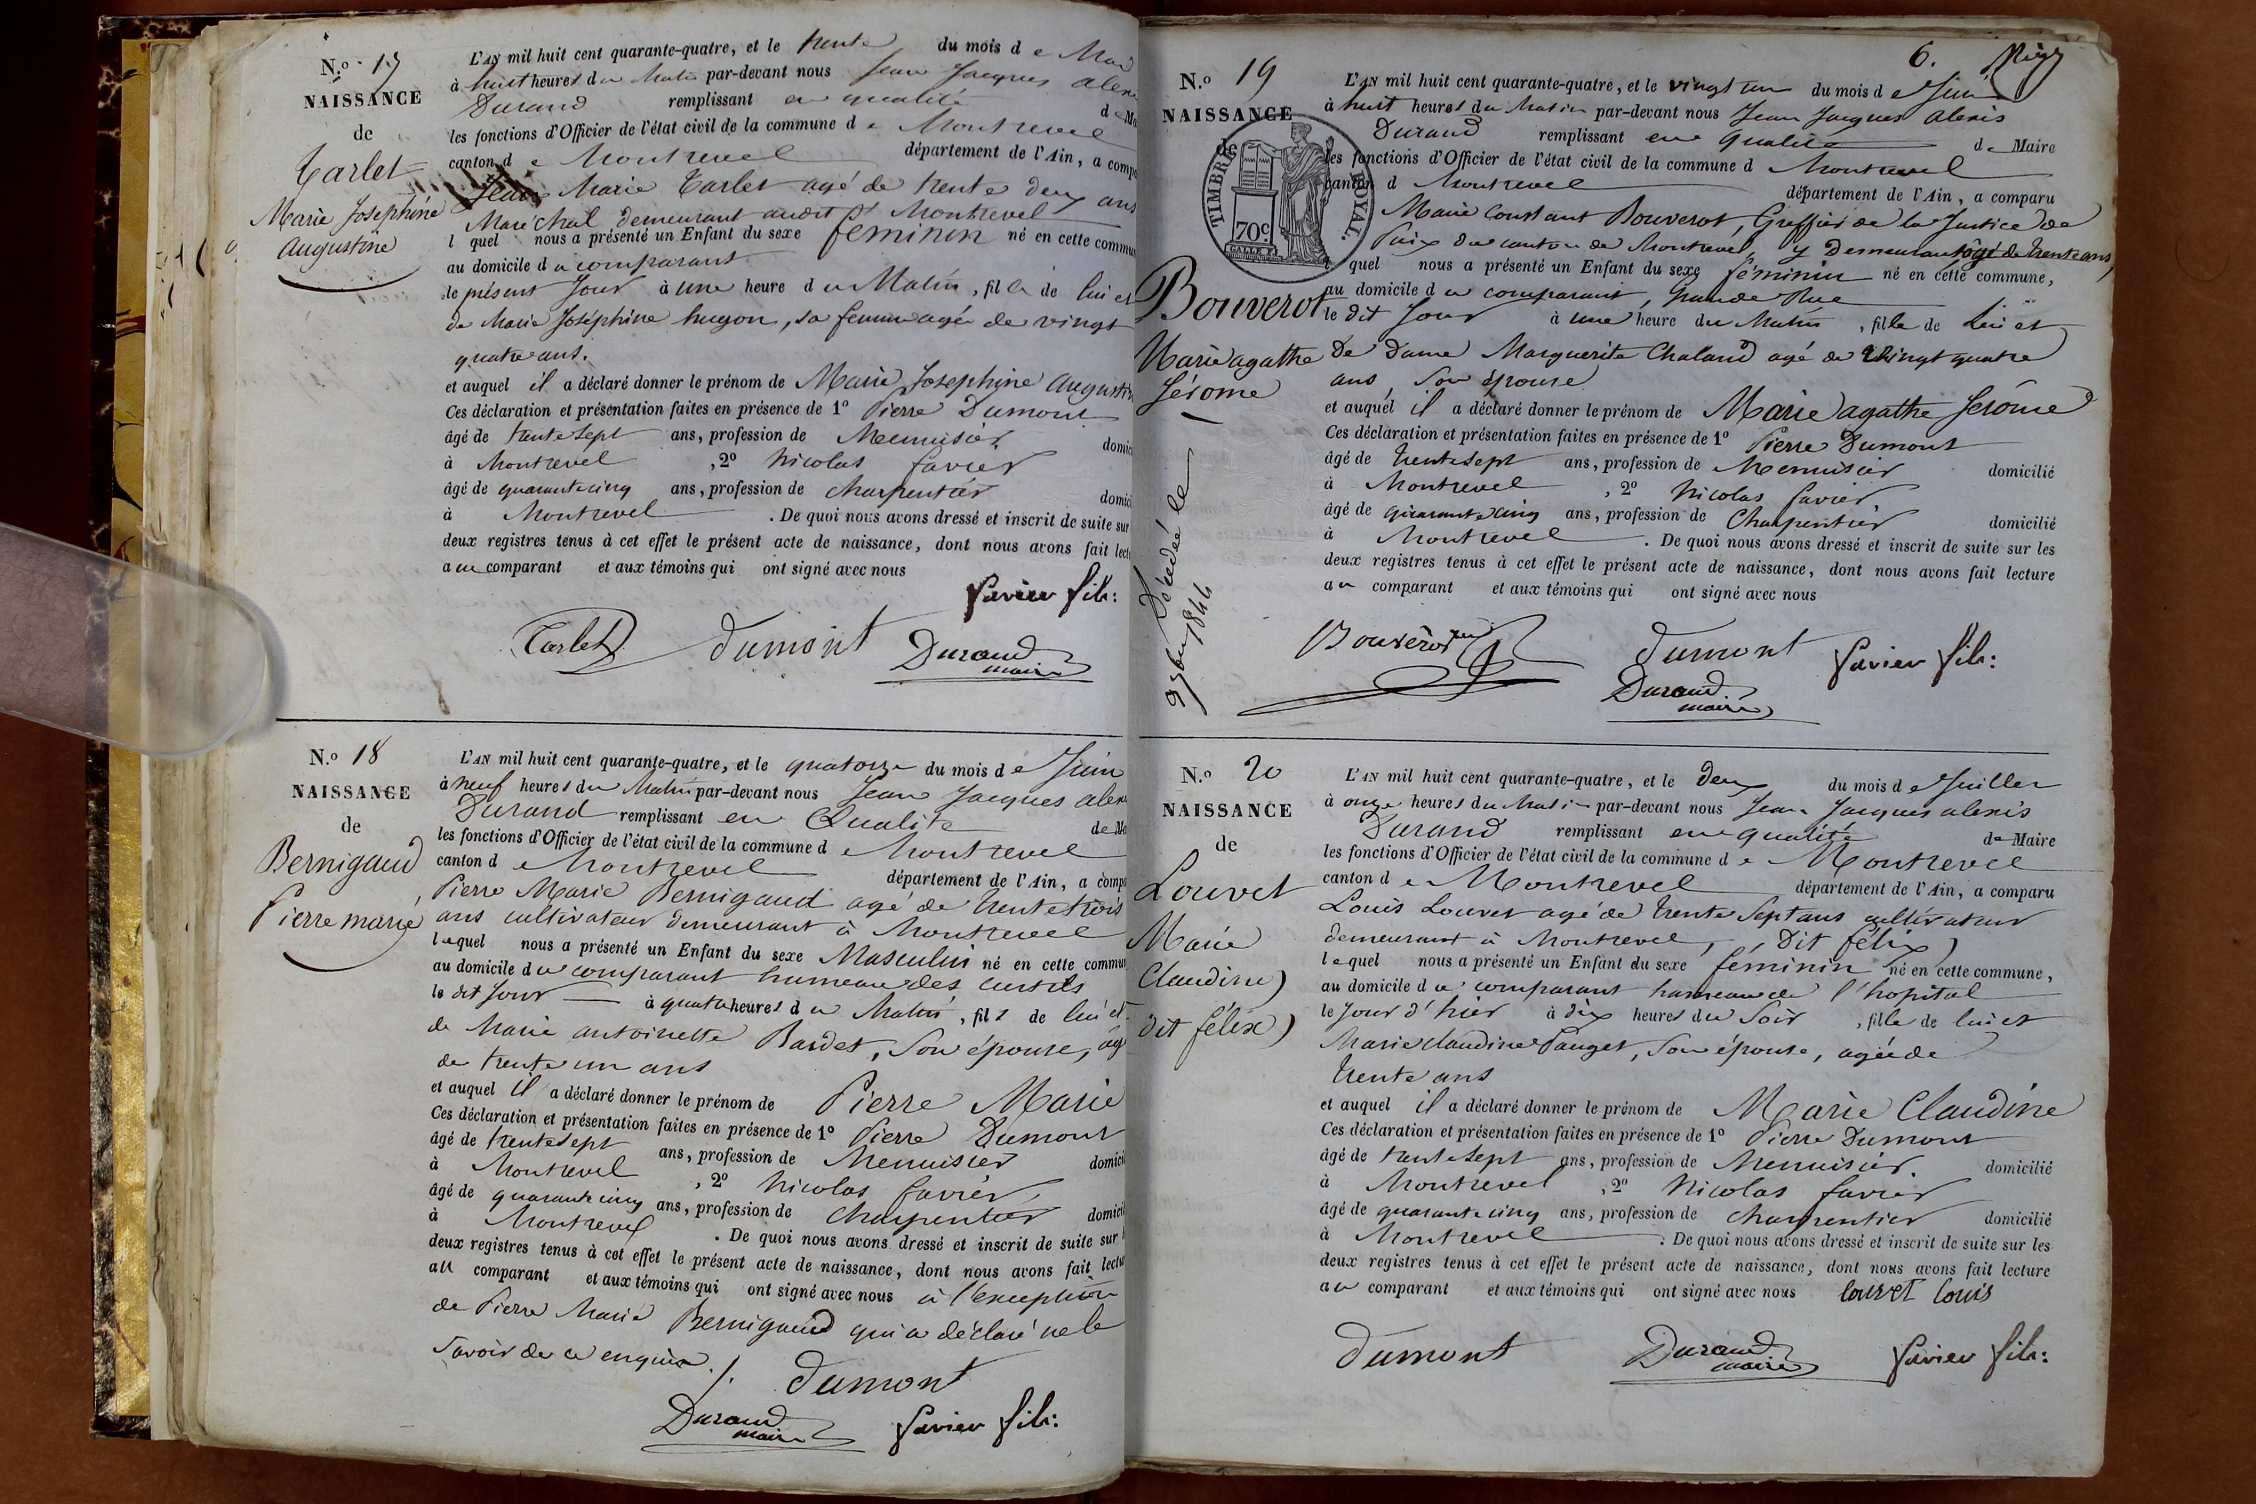 N.º 17
NAISSANCE
de
Tarlet
Marie Joséphine
Augustine
L'AN mil huit cent quarante-quatre, et le trente du mois de Mai
à huit heures du Matin par-devant nous Jean Jacques alexi
Durand remplissant en qualité d
les fonctions d'Officier de l'état civil de la commune de Montrevel
canton de Montrevel département de l'Ain, a comp
Jean Marie Tarlet agé de trente deux ans
Maréchal demeurant audit Montrevel
lequel nous a présenté un Enfant du sexe féminin né en cette commu
au domicile du comparant
le présent Jour à une heure du Matin, fille de lui et
de Marie Joséphine hugon, sa femme agée de vingt
quatre ans.
et auquel il a déclaré donner le prénom de Marie Josephine Augustin
Ces déclaration et présentation faites en présence de 1º Pierre Dumont
âgé de trente Sept ans, profession de Menuisier domici
à Montrevel , 2º Nicolas favier
âgé de quarante cinq ans, profession de charpentier domici
à Montrevel . De quoi nous avons dressé et inscrit de suite sur
deux registres tenus à cet effet le présent acte de naissance, dont nous avons fait lect
au comparant et aux témoins qui ont signé avec nous
favier fils:
Tarlet dumont Durand
maire
N.º 18
NAISSANCE
de
Bernigaud
Pierre marie
L'AN mil huit cent quarante-quatre, et le quatorze du mois de Juin
à neuf heures du Matin par-devant nous Jean Jacques alex
Durand remplissant en Qualité de Ma
les fonctions d'Officier de l'état civil de la commune de Montrevel
canton de Montrevel département de l'Ain, a comp
Pierre Marie Bernigaud agé de trente trois
ans cultivateur demeurant à Montrevel
lequel nous a présenté un Enfant du sexe Masculin né en cette commun
au domicile du comparant humeau des curtils
le dit Jour à quatre heures du Matin, fils de lui et
de Marie antoinette Bardet, Son épouse, ag
de trente un ans
et auquel il a déclaré donner le prénom de Pierre Marie
Ces déclaration et présentation faites en présence de 1º Pierre Dumont
âgé de trente Sept ans, profession de Menuisier domici
à Montrevel , 2º Nicolas favier
âgé de quarante cinq ans, profession de charpentier domici
à Montrevel . De quoi nous avons dressé et inscrit de suite sur
deux registres tenus à cet effet le présent acte de naissance, dont nous avons fait lectu
au comparant et aux témoins qui ont signé avec nous à l'exception
de Pierre Marie Bernigaud qui a déclaré ne le
Savoir de ce enquis ./. dumont
Durand favier fils:
maire
6.
N.º 19
NAISSANCE
de
TIMBRE ROYAL.
70c
Bouverot
Marie agathe
Jérome
Décédée le
9bre 1844
L'AN mil huit cent quarante-quatre, et le vingt un du mois de Juin
à huit heures du Matin par-devant nous Jean Jacques alexis
Durand remplissant en qualité de Maire
les fonctions d'Officier de l'état civil de la commune d Montrevel
canton d Montrevel département de l'Ain, a comparu
Marie Constant Bouverot, Greffier de la Justice de
Paix du canton de Montrevel, y Demeurant agé de trente ans,
lequel nous a présenté un Enfant du sexe féminin né en cette commune,
au domicile du comparant, Grande Rue
le dit Jour à une heure du Matin, fille de Lui et
De Dame Marguerite Chaland agé de vingt quatre
ans, Son épouse
et auquel il a déclaré donner le prénom de Marie agathe Jérôme
Ces déclaration et présentation faites en présence de 1º Pierre Dumont
âgé de trente Sept ans, profession de Menuisier domicilié
à Montrevel , 2º Nicolas favier
âgé de quarante cinq ans, profession de Charpentier domicilié
à Montrevel . De quoi nous avons dressé et inscrit de suite sur les
deux registres tenus à cet effet le présent acte de naissance, dont nous avons fait lecture
au comparant et aux témoins qui ont signé avec nous
Bouverot dumont favier fils:
Durand
maire
N.º 20
NAISSANCE
de
Louvet
Marie
Claudine
dit félix
L'AN mil huit cent quarante-quatre, et le deux du mois de Juillet
à onze heures du Matin par-devant nous Jean Jacques alexis
Durand remplissant en qualité de Maire
les fonctions d'Officier de l'état civil de la commune de Montrevel
canton de Montrevel département de l'Ain, a comparu
Louis Louvet agé de trente Sept ans cultivateur
demeurant à Montrevel, Dit félix
lequel nous a présenté un Enfant du sexe féminin né en cette commune,
au domicile du comparant hameau de l'hopital
le Jour d'hier à dix heures du Soir, fille de lui et
Marie claudine Pauget, Son épouse, agée de
trente ans
et auquel il a déclaré donner le prénom de Marie Claudine
Ces déclaration et présentation faites en présence de 1º Pierre Dumont
âgé de trente Sept ans, profession de Menuisier. domicilié
à Montrevel , 2º Nicolas favier
âgé de quarante cinq ans, profession de charpentier domicilié
à Montrevel . De quoi nous avons dressé et inscrit de suite sur les
deux registres tenus à cet effet le présent acte de naissance, dont nous avons fait lecture
au comparant et aux témoins qui ont signé avec nous louvet louis
dumont Durand favier fils:
maire